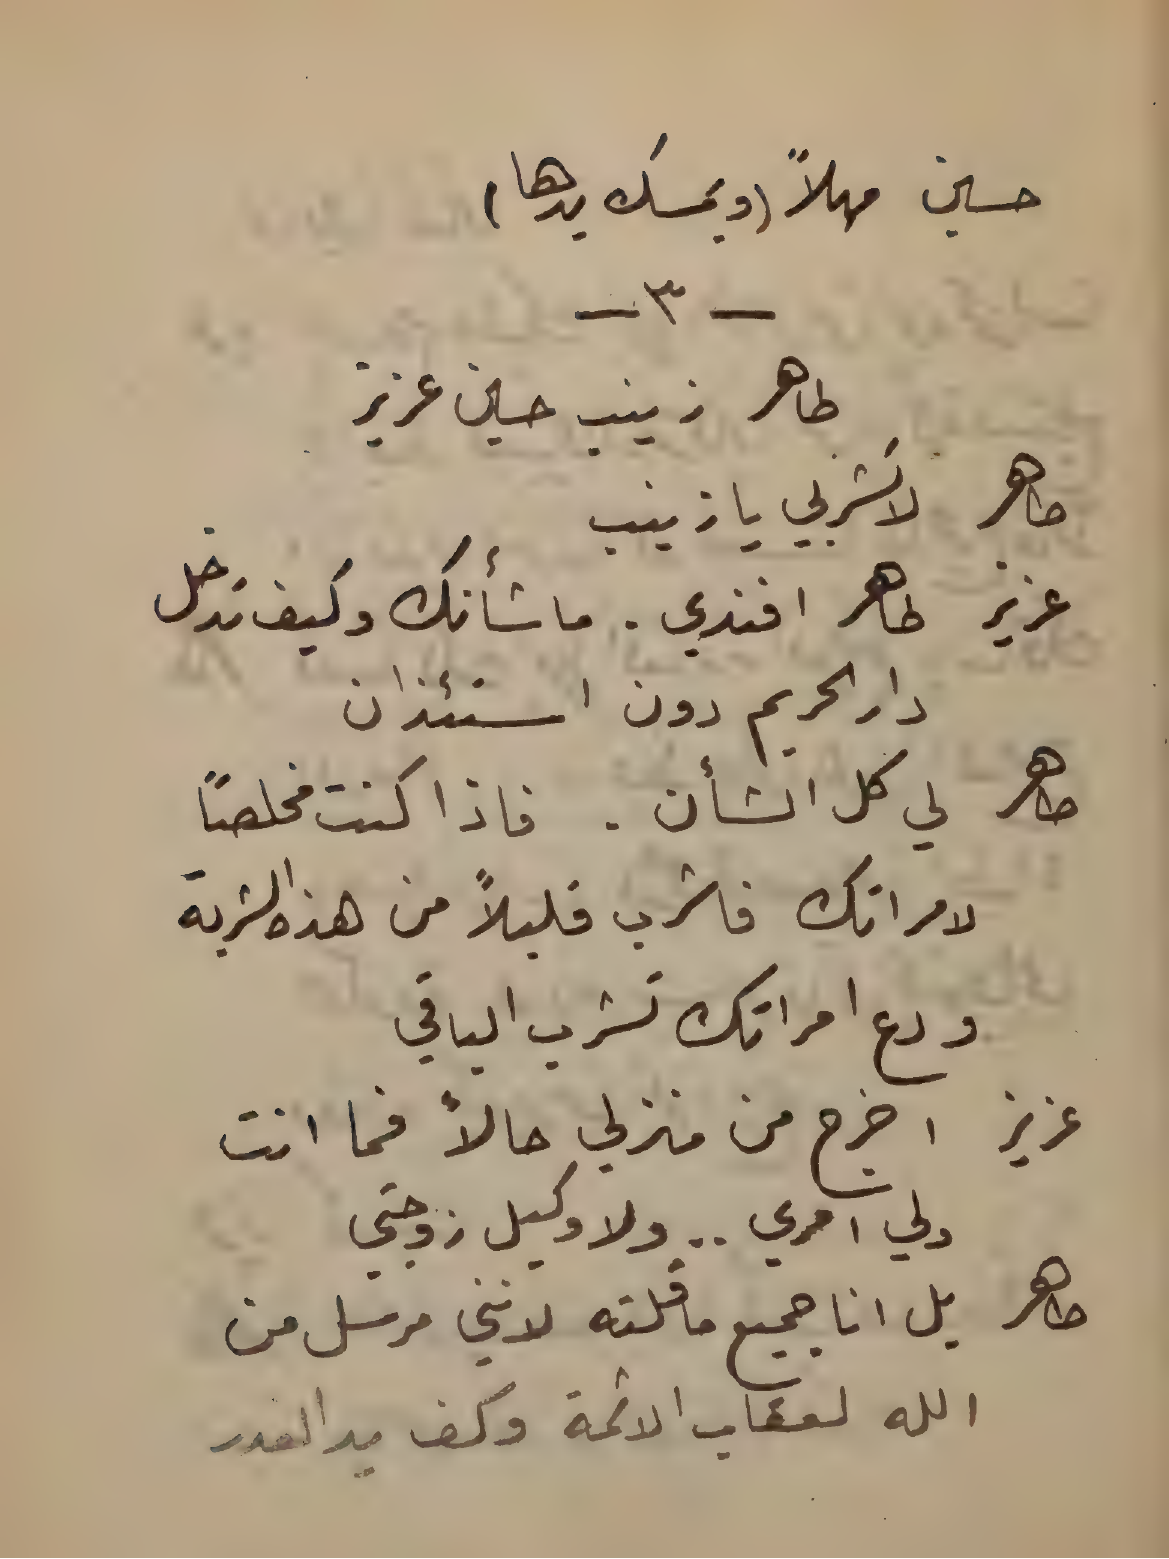 حسين مهلاً (ويمسك يدها)
— ٣ —
طاهر زينب حسين عزيز
طاهر لا تشربي يا زينب
عزيز طاهر افندي . ما شأنك وكيف تدخل
دار الحريم دون استئذان
طاهر لي كل الشأن . فاذا كنت مخلصًا
لامراتك فاشرب قليلاً من هذه الشربة
ودع امراتك تشرب الباقي
عزيز اخرج من منزلي حالاً فما انت
ولي امري .. ولا وكيل زوجتي
طاهر بل انا جميع ما قلته لانني مرسل من
الله لعقاب الاثمة وكف يد الغدر